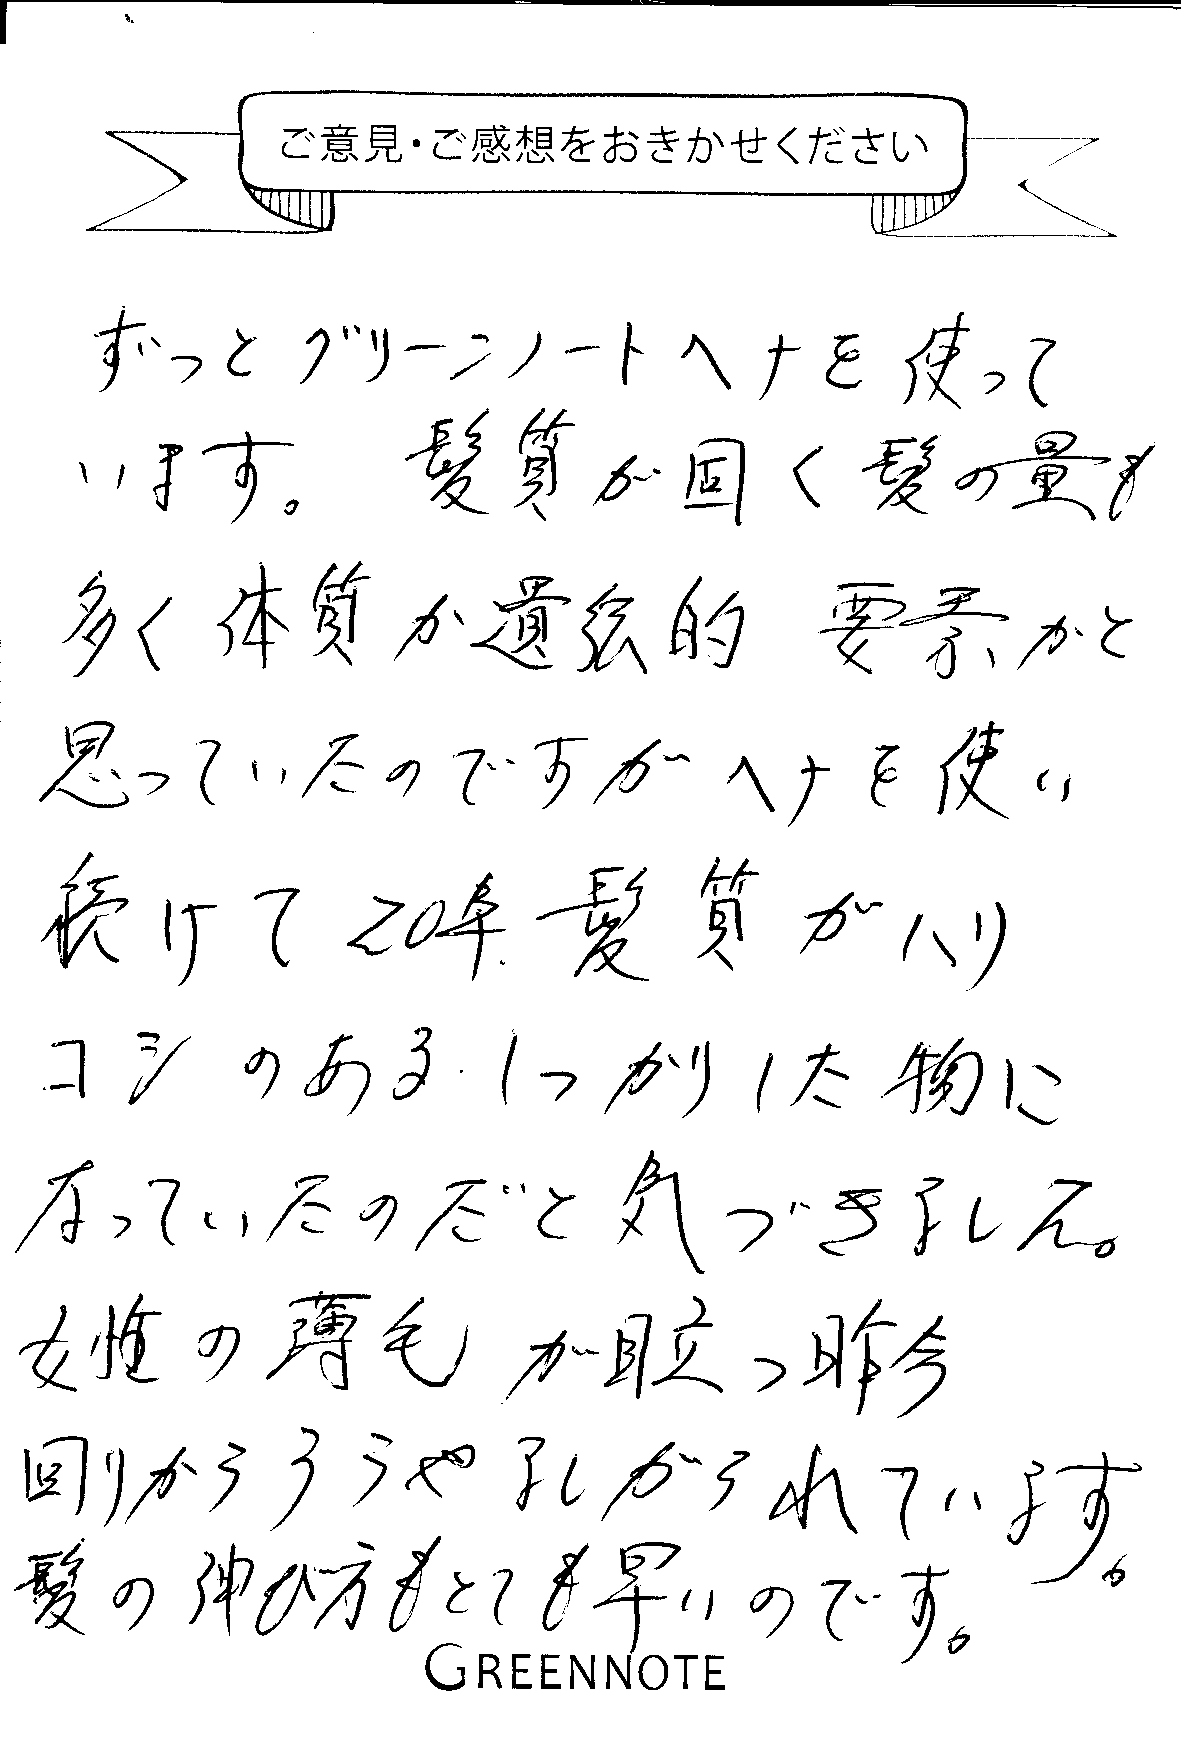 ご意見・ご感想をおきかせください
ずっとグリーンノートヘナを使って
います。髪質が固く髪の量も
多く体質か遺伝的要素かと
思っていたのですがヘナを使い
続けて20年髪質がハリ
コシのあるしっかりした物に
なっていたのだと気づきました。
女性の薄毛が目立つ昨今
回りからうらやましがられています。
髪の伸び方もとても早いのです。
GREENNOTE